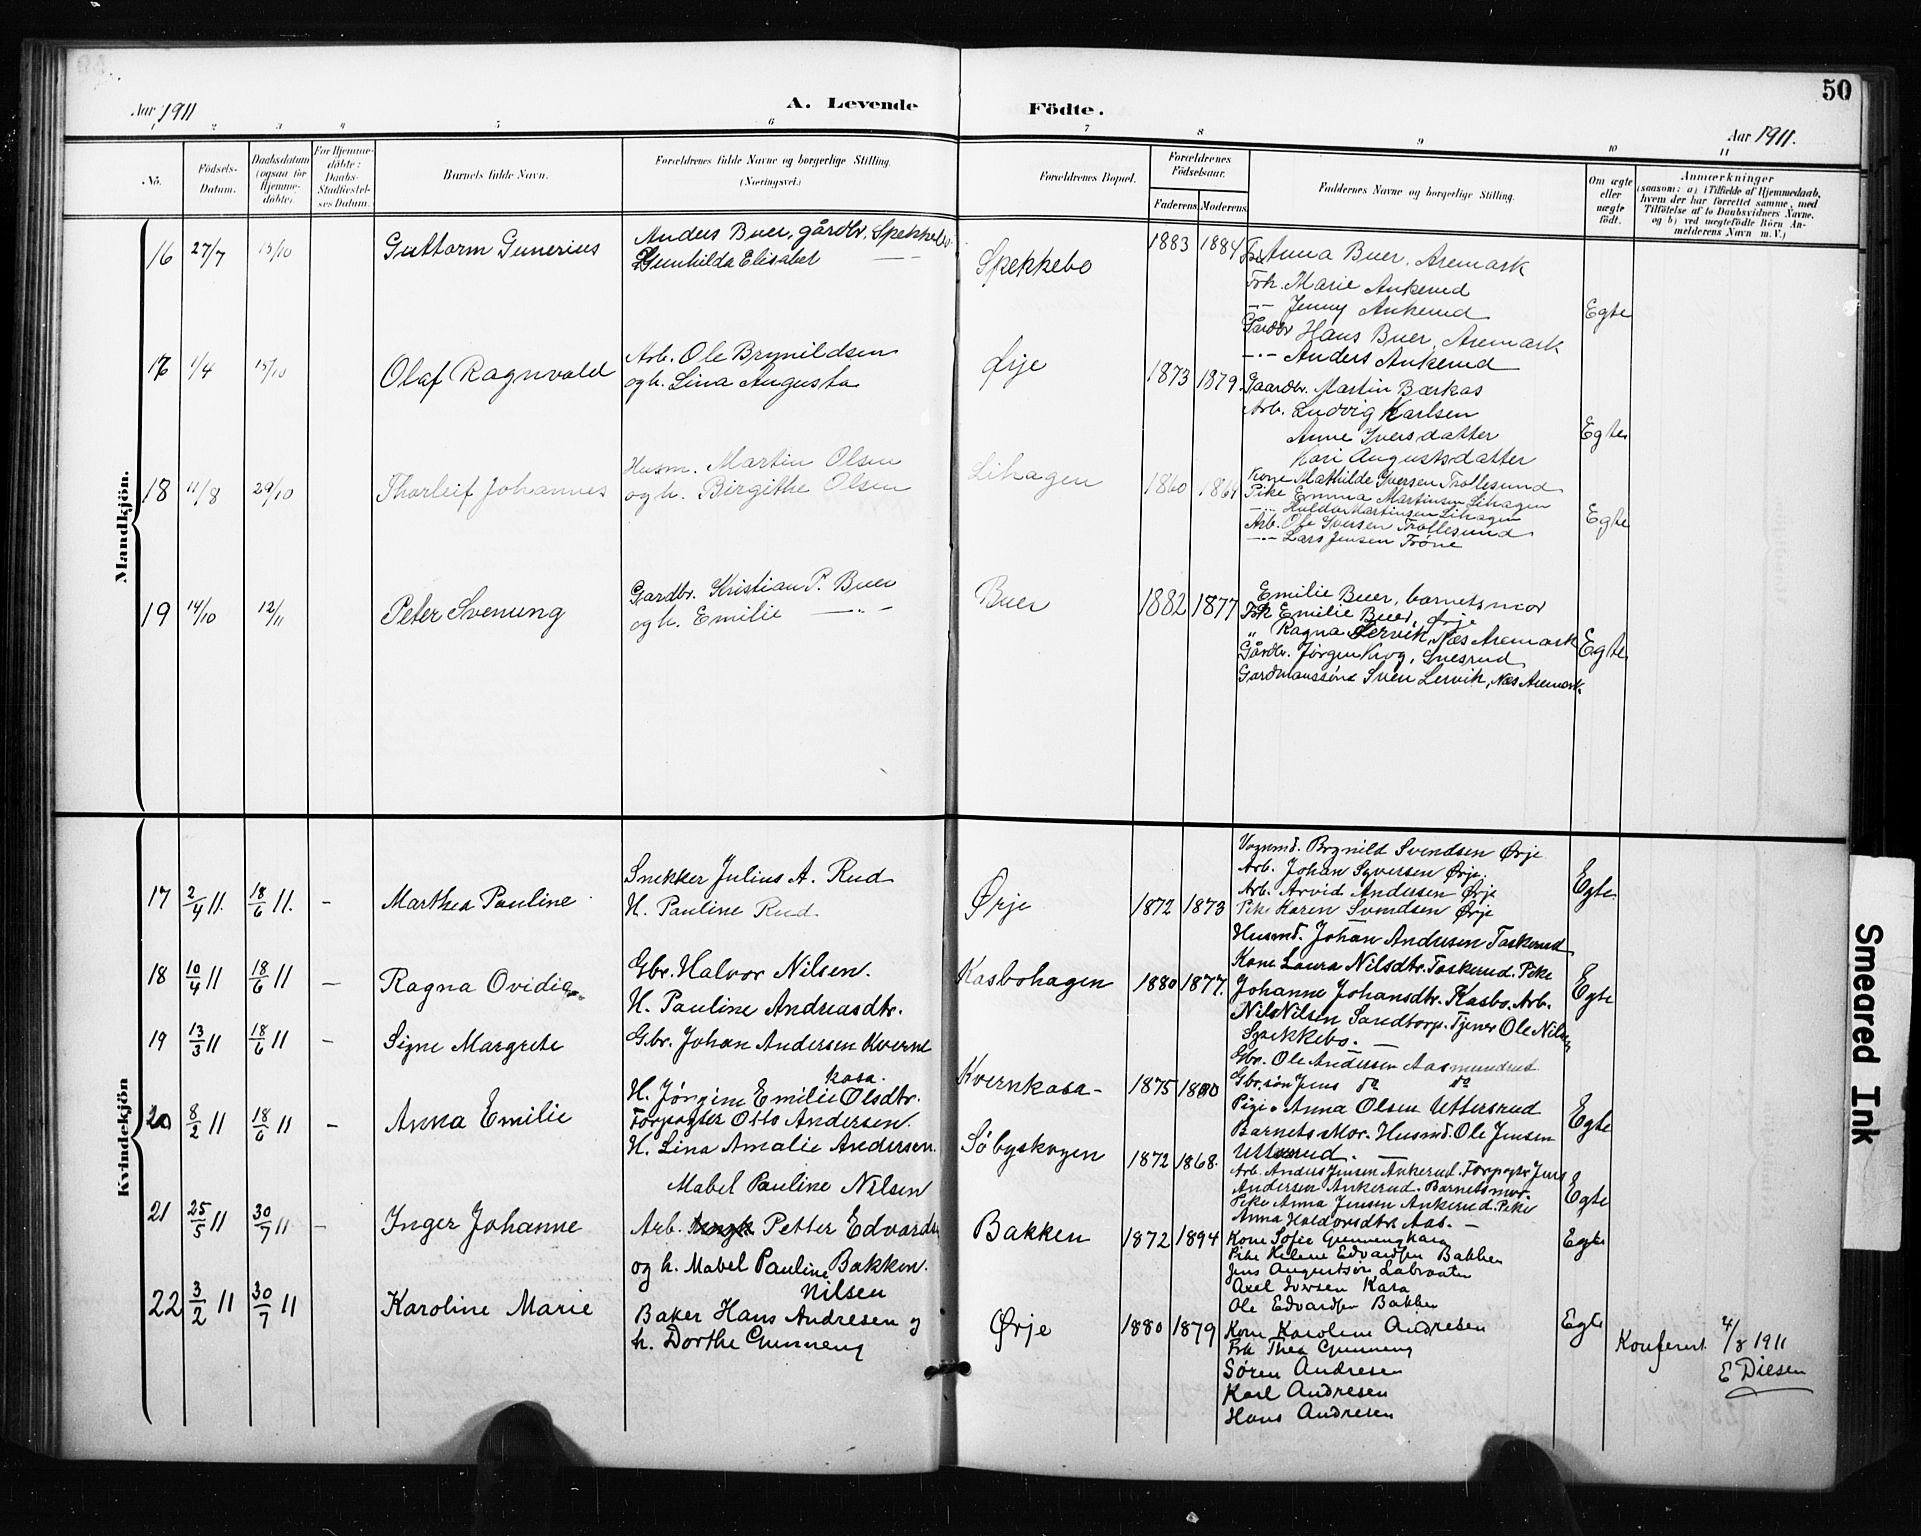 50
Aar 1911
A. Levende Födte.
Aar 1911.
1 2 3 4 5 6 7 8 9 10 11
No.
Födsels-Datum.
Daabsdatum (ogsaa for Hjemme-döbte).
For Hjemme-döbte: Daabs-Stadfæstel-ses Datum.
Barnets fulde Navn.
Forældrenes fulde Navne og borgerlige Stilling. (Næringsvei.)
Forældrenes Bopæl.
Forældrenes Födselsaar.
Faderens. Moderens.
Faddernes Navne og borgerlige Stilling.
Om ægte eller uægte födt.
Anmærkninger
(saasom: a) i Tilfælde af Hjemmedaab, hvem der har forrettet samme, med Tilföielse af to Daabsvidners Navne, og b) ved uægtefödte Börn An-melderens Navn m. V.)
Mandkjön.
16 27/7 15/10 Guttorm Gunerius
Anders Buer, gårdbr. Spekkebo
Gunhilda Elisabet — —
Spekkebo 1883 1884
Anna Buer, Aremark
Frk. Marie Ankerud
-"- Jenny Ankerud
Gardbr Hans Buer, Aremark
-"- Anders Ankerud
Egte
17 1/4 15/10 Olaf Ragnvald
Arb. Ole Brynildsen
og h. Lina Augusta
Ørje 1873 1879
Gaardbr. Martin Bærkas
Arb. Ludvig Karlsen
Anne Iversdatter
Kari Augustsdatter
Egte
18 11/8 29/10 Thorleif Johannes
Husm. Martin Olsen
og h. Birgithe Olsen
Lihagen 1860 1864
Kone Mathilde Iversen Trollesund
Pike Emma Martinsen Lihagen
-"- Hulda Martinsen Lihagen
Arb. Ole Iversen Trollesund
-"- Lars Jensen Tröne
Egte
19 14/10 12/11 Peter Svenung
Gardbr. Kristian P. Buer
og h. Emilie — " —
Buer 1882 1877
Emilie Buer, barnets mor
Frk Emilie Buer, Ørje
" Ragna Lervik, Næs Aremark
Gårdbr. Jørgen Krog,
Gardmannssønn Sven Lervik, Næs Aremark.
Egte
Kvindekjön
17 2/4 11. 18/6 11. - Marthea Pauline
Snekker Julius A. Rud
H. Pauline Rud.
Ørje 1872 1873
Vognmd. Brynild Svendsen Ørje
Arb. Johan Syversen Ørje.
Arb. Arvid Andersen Ørje
Pike Karen Svendsen Ørje
Egte.
18 10/4 11 18/6 11 - Ragna Ovidia
Gbr. Halvor Nilsen.
H. Pauline Andreasdtr.
Kasbohagen 1880 1877.
Husmd. Johan Andersen Taskerud
Kone Laura Nilsdtr. Taskerud. Pike
Johanne Johansdtr. Kasbo. Arb.
Nils Nilsen Sandtorp. Tjener Ole Nilsen
Spekkebo. —
Egte
19 13/3 11 18/6 11 - Signe Margrete
Gbr. Johan Andersen Kverne
kasa.
H. Jørgine Emilie Olsdtr.
Kvernkasa - 1875 1880
Gbr. Ole Andersen Aasmundrud
Gbr.søn Jens do do
Pige Anna Olsen Uttersrud
Barnets Mor. Husmd. Ole Jensen
Uttersrud. —
Egte
20 8/2 11 18/6 11 - Anna Emilie
Forpagter Otto Andersen.
H. Lina Amalie Andersen.
Søbyskogen 1872 1868.
Arb. Anders Jensen Ankerud. Forpagter Jens
Andersen Ankerud. Barnets mor.
Pike Anna Jensen Ankerud. Pike
Anna Haldorsdtr. Aas. —
Egte
21 25/5 11 30/7 11 - Inger Johanne
Mabel Pauline Nilsen
Arb. Petter Edvardsen
og h. Mabel Pauline Bakken.
Nilsen
Bakken 1872 1894
Kone Sofie Gunneng Kasa
Pike Helene Edvardsen Bakken
Jens Augustsøn Labraaten
Axel Iversen Kasa
Ole Edvardsen Bakken
Egte
22 3/2 11 30/7 11 Karoline Marie
Baker Hans Andresen og
h. Dorthe Gunneng
Ørje 1880 1879
Kone Karoline Andresen
Frk Thea Gunneng
Søren Andresen
Karl Andresen
Hans Andresen
Egte
Konferert 4/8 1911
E Diesen
Smeared Ink